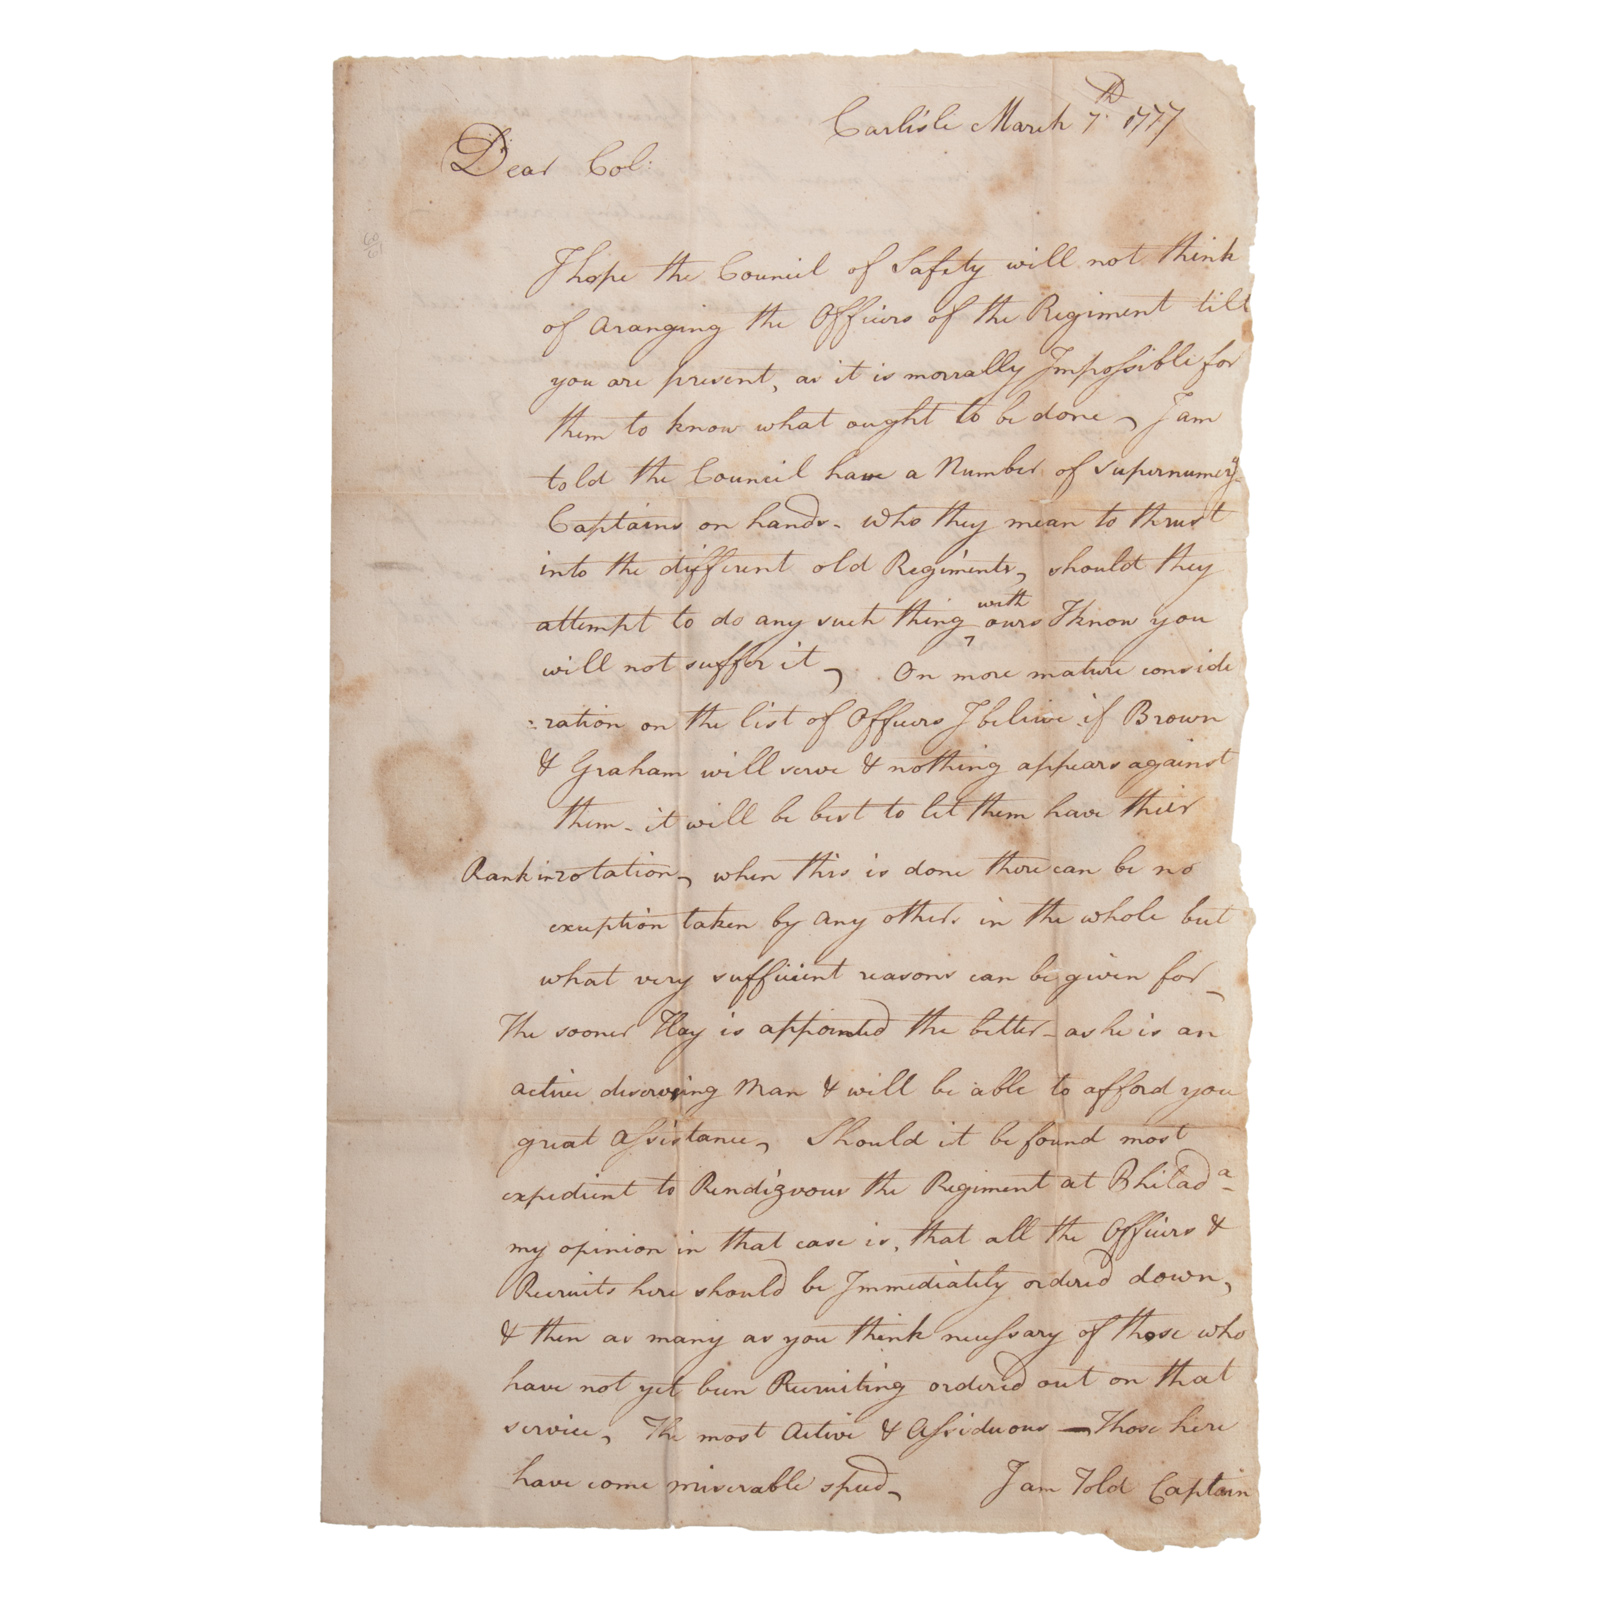 Carlisle March 7th 1777
Dear Col:
I hope the Council of Safety will not think
of aranging the Officers of the Regiment till
you are present, as it is morrally Impossible for
them to know what ought to be done, I am
told the Council have a Number of supernumery
Captains on hands - who they mean to thrust
into the different old Regiments, should they
attempt to do any such thing with ours I know you
will not suffer it, On more mature conside
:ration on the list of Officers I believe if Brown
& Graham will serve & nothing appears against
them - it will be best to let them have their
Rank in rotation, when this is done there can be no
exception taken by any others in the whole but
what very sufficient reasons can be given for -
The sooner Hay is appointed the better - as he is an
active deserving Man & will be able to afford you
great assistance, Should it be found most
expedient to Rendizvous the Regiment at Philada
my opinion in that case is, that all the Officers &
Recruits here should be Immediately ordered down,
& then as many as you think necessary of those who
have not yet been Recruiting ordered out on that
service, The most Active & Assiduous — Those here
have come miserable speed, I am Told Captain